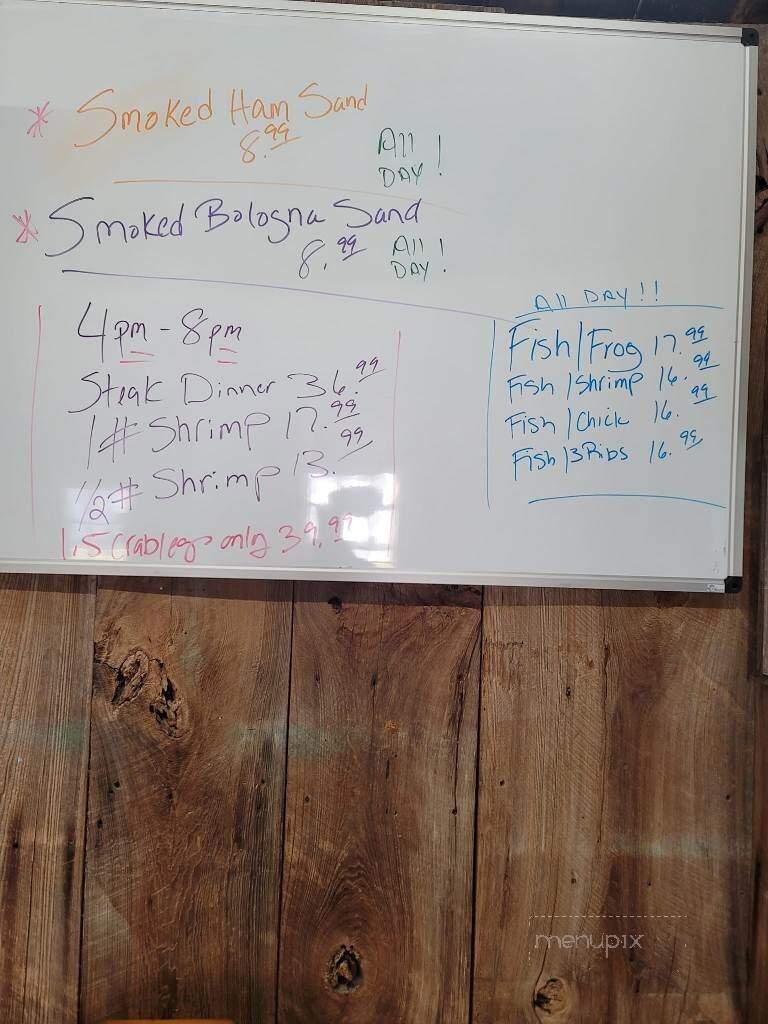 * Smoked Ham Sand
8.99
All
DAY!
* Smoked Bologna Sand
8.99
All
DAY!
4pm - 8pm
Steak Dinner 36.99
1# Shrimp 17.99
1/2# Shrimp 13.99
1.5 Crablegs only 39.99
All DAY!!
Fish/Frog 17.99
Fish/Shrimp 16.99
Fish/Chick 16.99
Fish/3Ribs 16.99
menupix